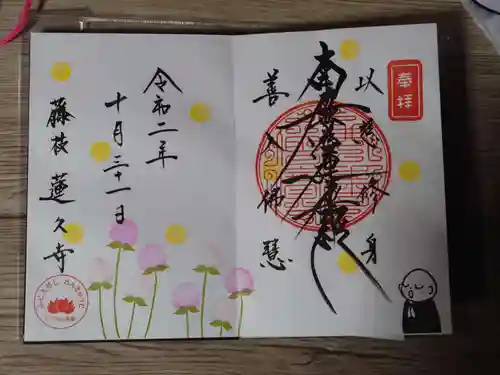 奉拝
以慈修身
南無妙法蓮華経
善入佛慧
令和二年
十月三十一日
藤枝 蓮久寺